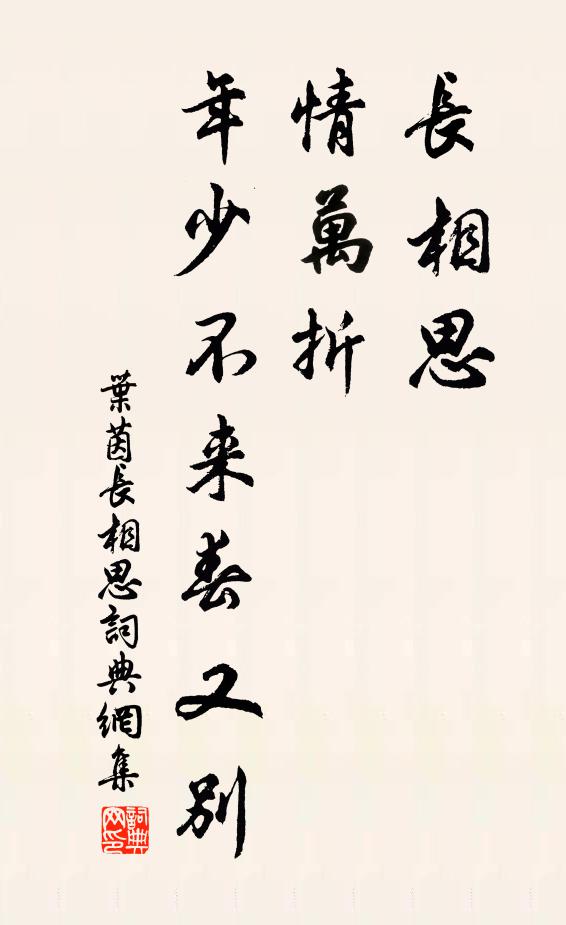 長相思
情萬折
年少不来春又別
葉茵長相思詞典網集
詞典网印